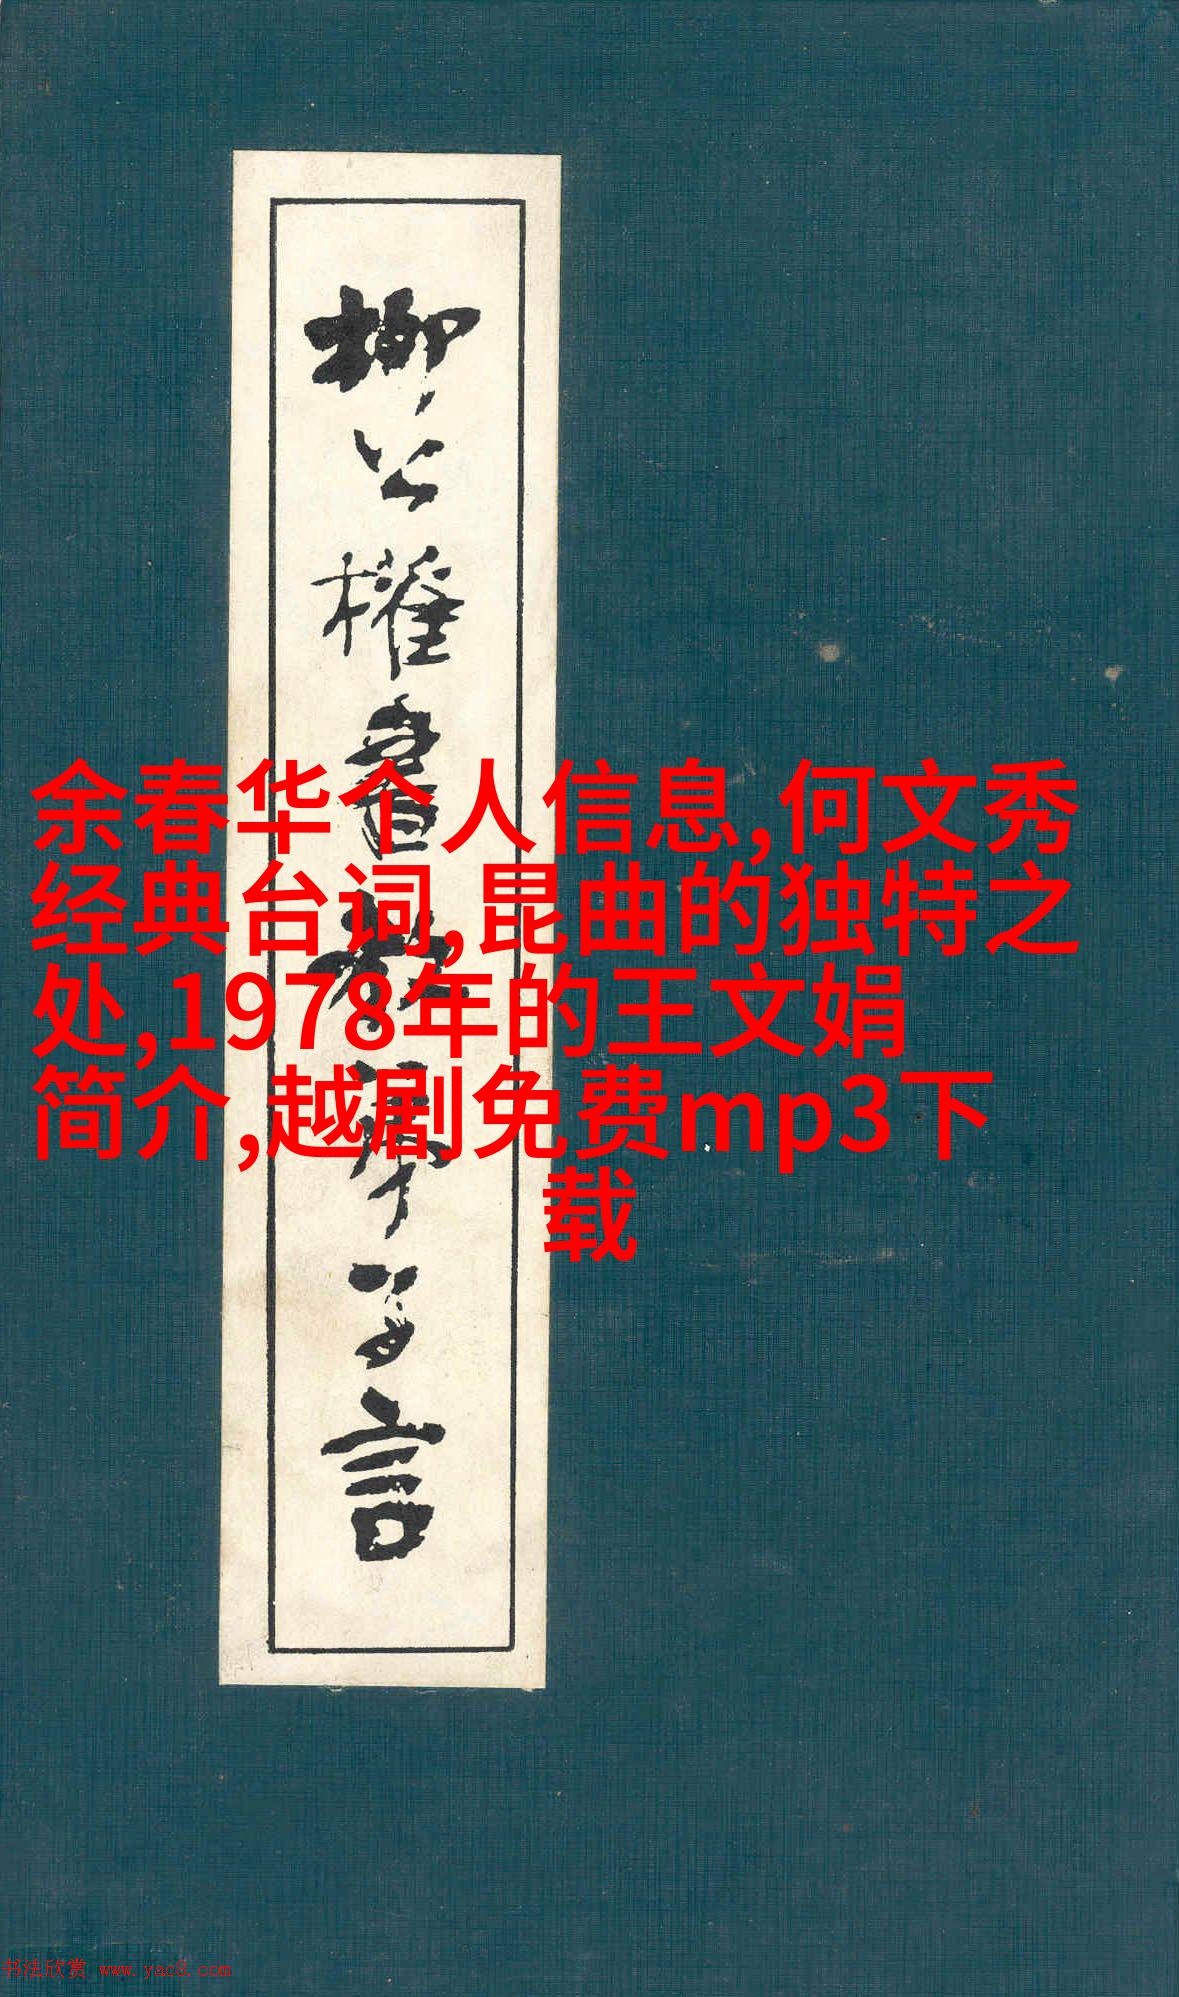 柳公權書教弟子言
余春华个人信息,何文秀
经典台词,昆曲的独特之
处,1978年的王文娟
简介,越剧免费mp3下
载
书法欣赏 www.yac8.com